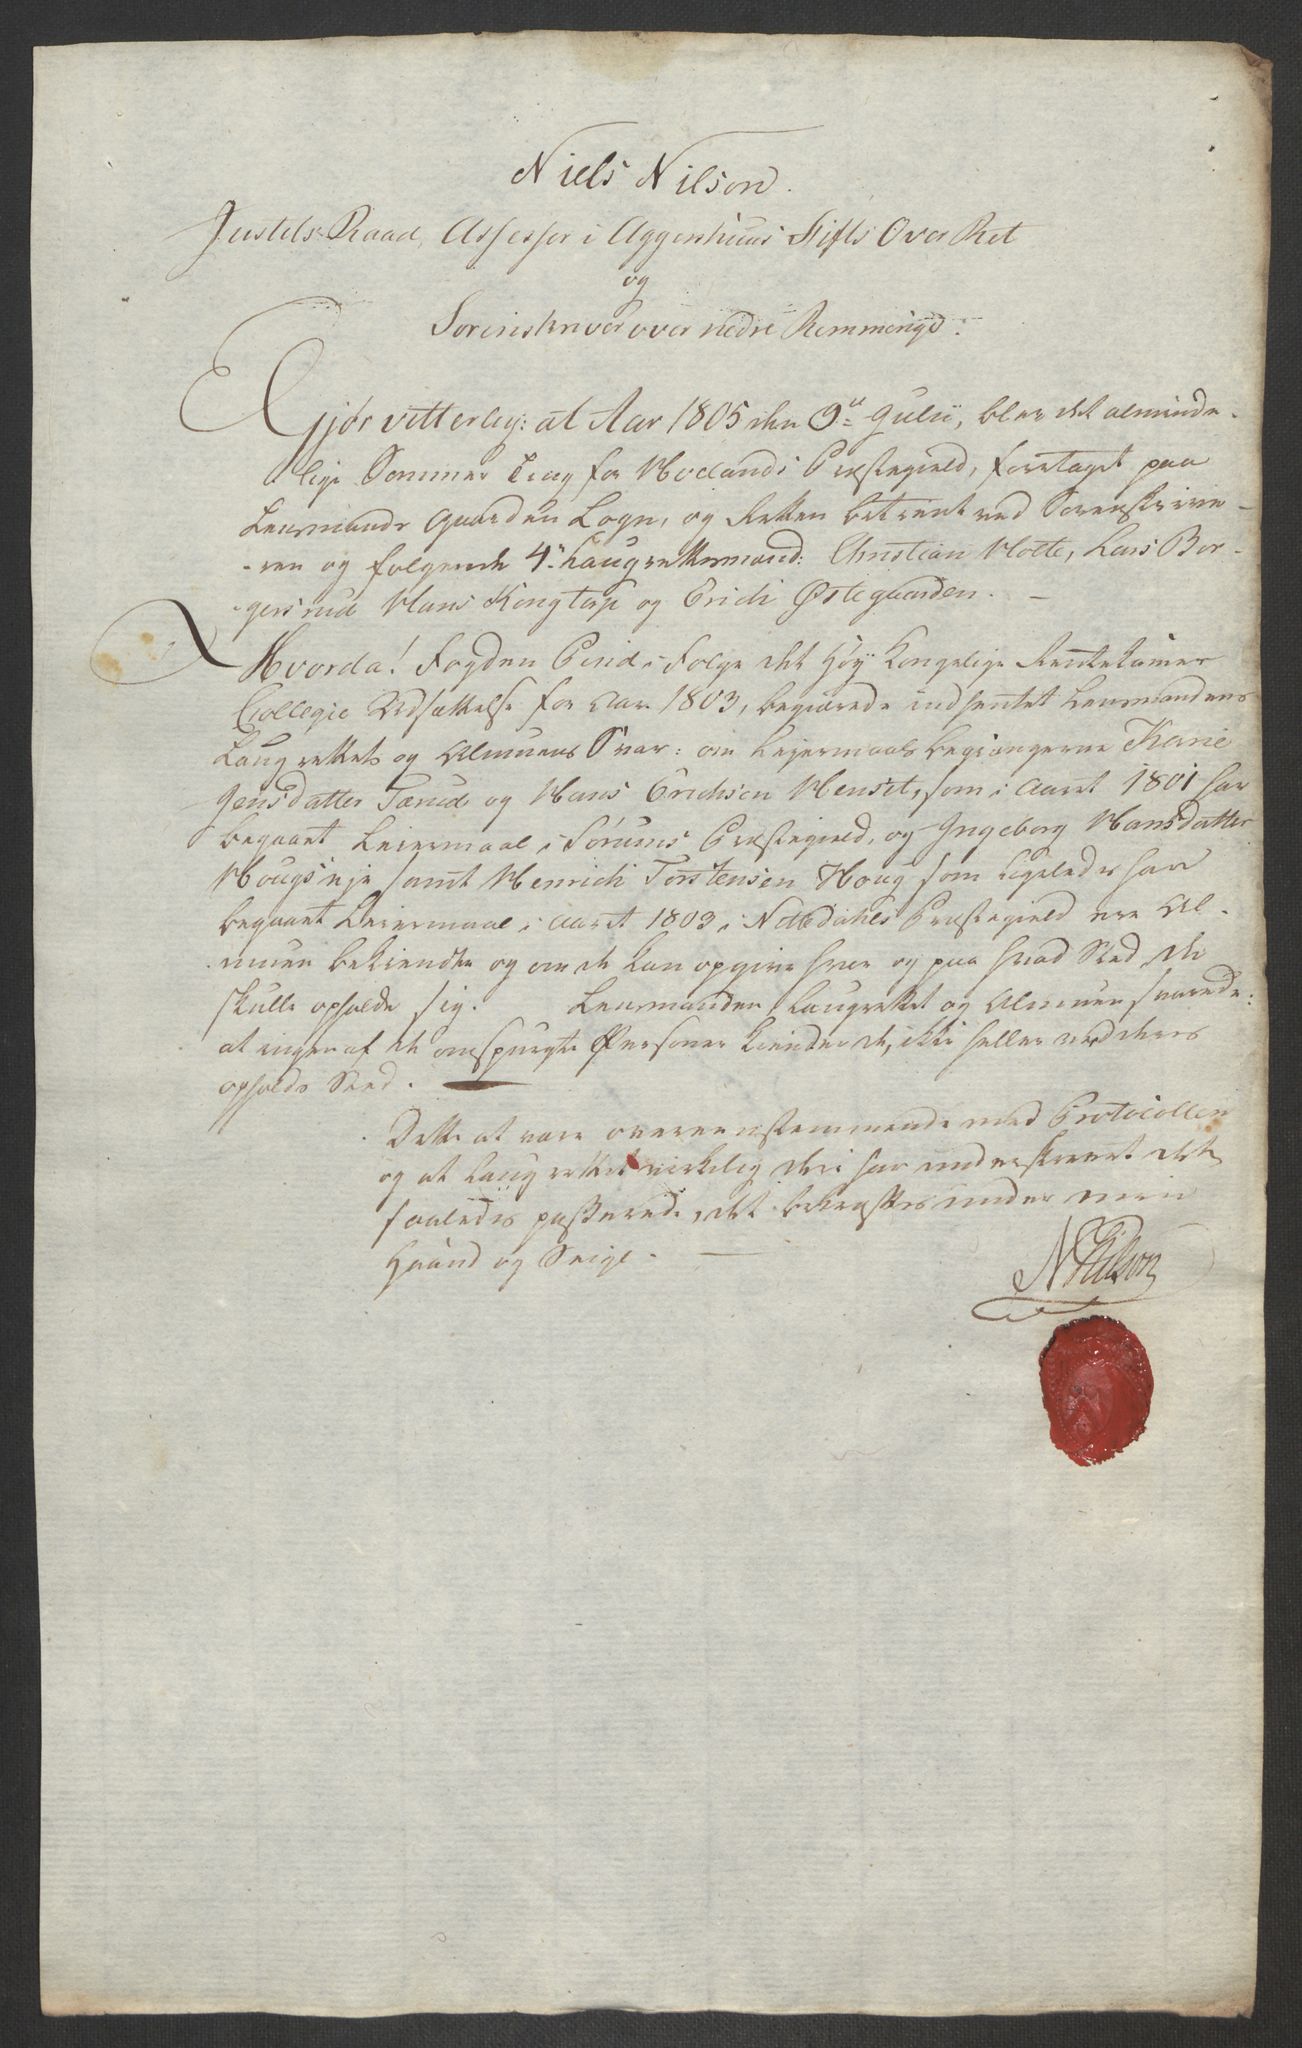 Niels Nilson.
Justits Raad, Assessor i Aggershuus Stifts Over Ret
og
Sorenskriver over nedre Rommerige.
Gjør vitterlig: at Aar 1805 den 9de Julii, blev det alminde-
lige Sommer Ting for Hølands Præstegield, foretaget paa
Lensmands Gaarden Logn, og Retten betient ved Sorenskrive-
-ren og følgende 4re Laugrettesmænd: Christian Motte, Lars Bor-
gersrud Hans Kongtorp og Erich Østegaarden. —
Hvorda! Fogden Lind i Følge det høy Kongelige Rentekamer
Collegie Udsættelse for Aar 1803, begiærede indhentet Lensmandens
Laugrettets og Almuens Svar: om Lejermaals begiængerne Karie
Jensdatter Tærud og Hans Erichsen Henset, som i Aaret 1801 har
begaaet Leiermaal i Sørums Præstegield, og Ingeborg Hansdatter
Hougs eje samt Henrich Torstensen Houg som ligeledes har
begaaet Leiermaal i Aaret 1803 i Nittedahls Præstegield ere Al-
muen bekiendte og om de kan opgive hvor og paa hvad Sted de
skulle opholde sig. Lensmanden Laugrettet og Almuen svarede:
at ingen af de omspurgte Personer kiender de, ikke heller ved deres
opholds Sted. —
Dette at være overeensstemmende med Protocollen
og at Laugrettet virkelig den har underskrevet det
saaledes passerede, det bekræftes under min
Haand og Seigl. —
NNilson